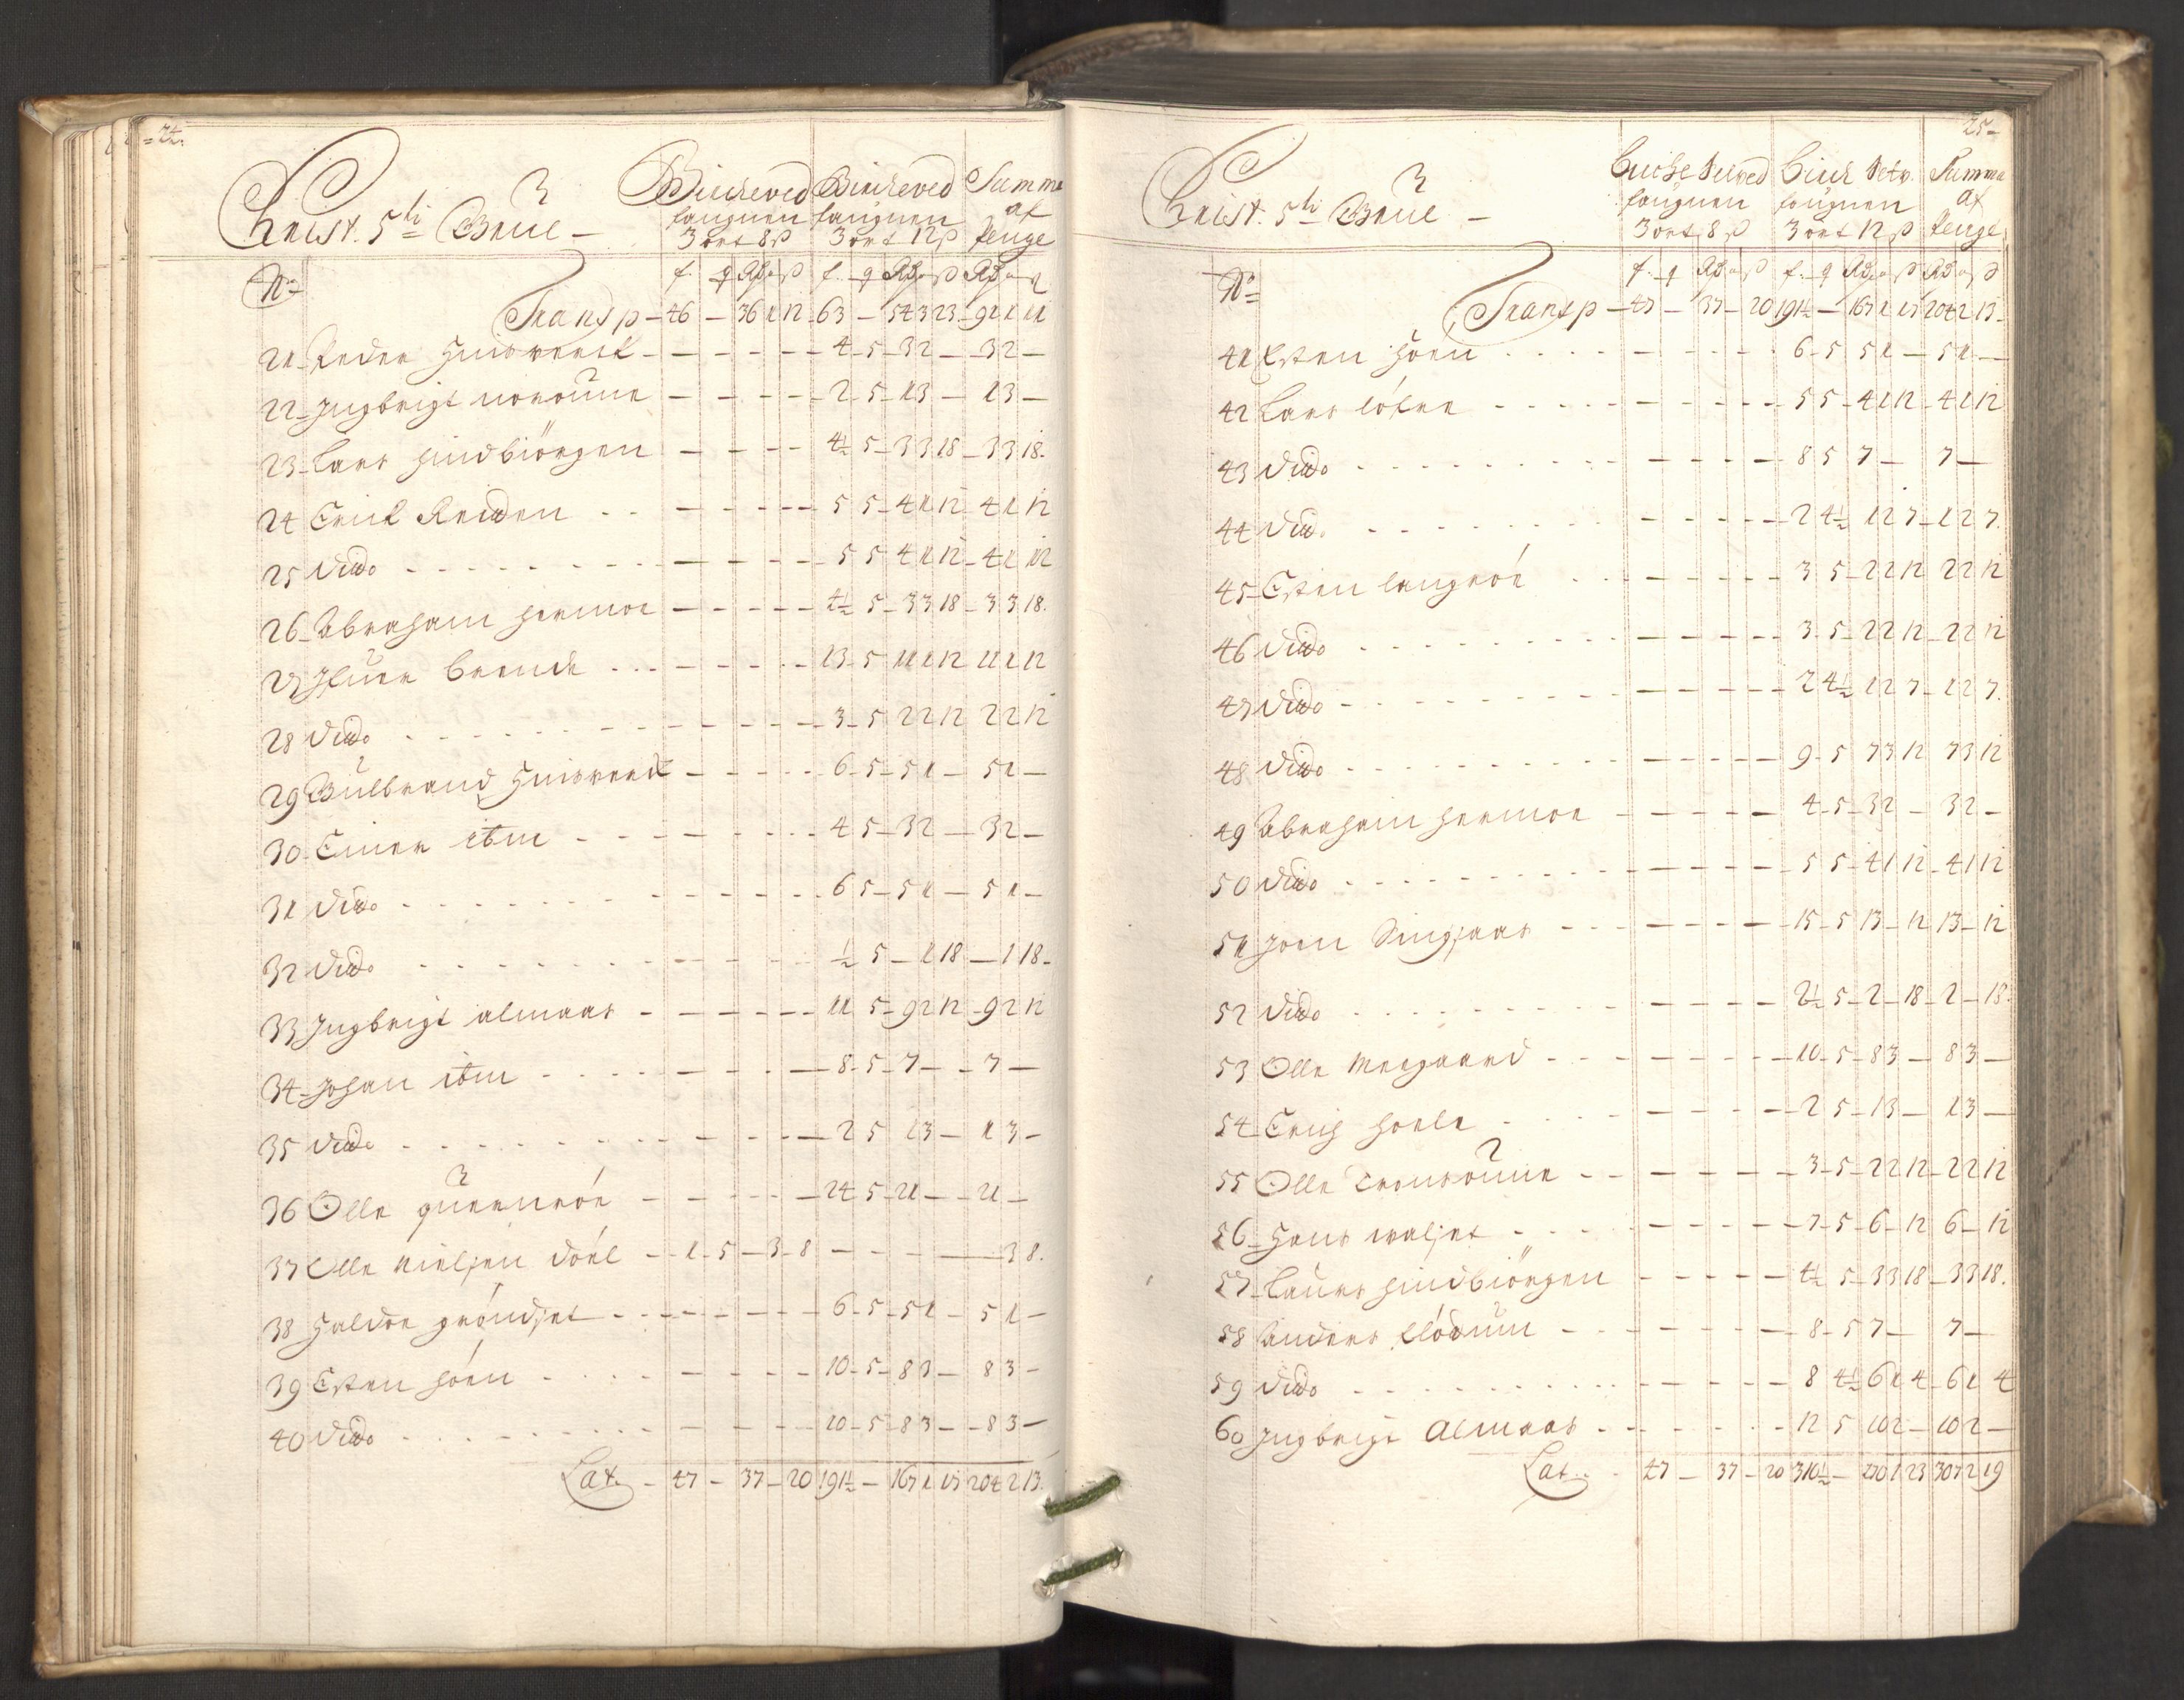 24.
Christ. 5ti Grue – Birckeved Birckeved Summa
faugnen faugnen af
3 ort 8 ß 3 ort 12 ß Penge
No f. q Rd o ß f. q Rd o ß Rd o ß
Transp – 46 – 36 1 12 63 – 54 3 23 – 91 1 11
21 Peder – – – – 4 – 5 – 3 2 – 3 2 –
22 Ingbrigt – – – – 2 – 5 – 1 3 – 1 3 –
23 Lars hindbiörgen – – – – 4½ 5 – 3 3 18 – 3 3 18.
24 Erick Reiden – – – – 5 5 – 4 1 12 4 1 12
25 Dido – – – – 5 5 4 1 12 – 4 1 12
26 Abraham hermoe – – – – 4½ 5 – 3 3 18 – 3 3 18.
27 Ifuer Brende – – – – 13 – 5 11 1 12 11 1 12
28 Dido – – – – 3 – 5 2 2 12 2 2 12
29 Gulbrand – – – – 6 – 5 – 5 1 – 5 1 –
30 Einer ibm – – – – 4 5 – 3 2 – 3 2 –
31 Dido – – – – 6 5 – 5 1 – 5 1 –
32 Dido – – – – ½ 5 – 1 18 – 1 18 –
33 Ingbrigt almaas – – – – 11 5 – 9 2 12 – 9 2 12
34 Johan ibm – – – – 8 – 5 – 7 – – 7 –
35 Dido – – – – 2 5 1 3 – 1 3 –
36 Olle – – – – 24 5 – 21 – – 21 –
37 Olle Nielsen döel – 1 – 5 – 3 – 8 – – – – 3 8.
38 Haldor gröndset – – – – 6 – 5 – 5 1 – 5 1 –
39 Esten höen – – – – 10 – 5 – 8 3 – 8 3 –
40 Dido – – – – 10 – 5 – 8 3 – – 8 3 –
Lat. – 47 – 37 – 20 191½ – 167 1 17 204 2 13.
25
Christ. 5ti Grue – Summa
faugnen faugnen af
3 ort 8 ß 3 ort 12 ß Penge
No f. q Rd o ß f. q Rd o ß Rd o ß
Transp – 47 – 37 – 20 191½ – 167 1 17 204 2 13 –
41 Esten höen – – – – 6 – 5 5 1 – 5 1 –
42 Lars – – – – 5 5 – 4 1 12 – 4 1 12
43 Dido – – – – 8 5 7 – 7 –
44 Dido – – – – 2 4½ 1 2 7 – 1 2 7.
45 Esten langröe – – – – 3 5 – 2 2 12 2 2 12
46 Dido – – – – 3 – 5 – 2 2 12 – 2 2 12
47 Dido – – – – 2 4½ 1 2 7 – 1 2 7.
48 Dido – – – – 9 – 5 7 3 12 7 3 12
49 Abraham hermoe – – – – 4 – 5 – 3 2 – 3 2 –
50 Dido – – – – 5 5 – 4 1 12 – 4 1 12
51 Joen Tingsaas – – – – 15 – 5 13 – 12 13 – 12
52 Dido – – – – 2½ 5 – 2 – 18 – 2 – 18.
53 Olle Moegaard – – – – 10 – 5 – 8 3 – 8 3 –
54 Erich – – – – 2 5 – 1 3 – 1 3 –
55 Olle Tronsoune – – – – 3 – 5 – 2 2 12 – 2 2 12
56 Hans walset – – – – 7 – 5 – 6 – 12 6 – 12
57 Laurs hindbiörgen – – – – 4½ 5 – 3 3 18 – 3 3 18.
58 Anders – – – – 8 – 5 7 – 7 –
59 Dido – – – – 8 4½ 6 1 4 – 6 1 4
60 Ingbrigt Almaas – – – – 12 5 10 2 – 10 2 –
Lat. – 47 – 37 – 20 310½ – 270 1 23 307 2 19